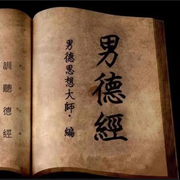 男德經
男德思想大師·編
訓聽德經